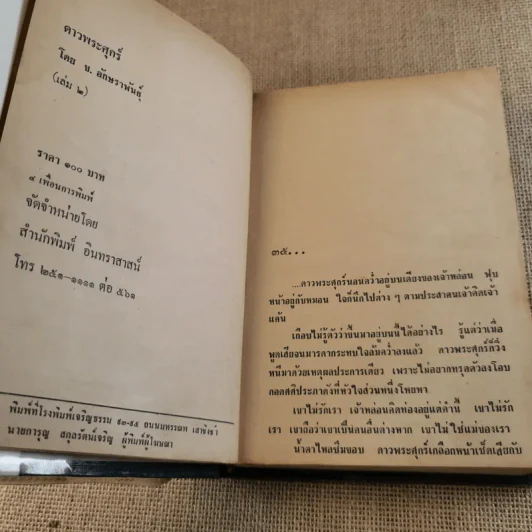 ดาวพระศุกร์
โดย ข. อักษราพันธุ์
(เล่ม ๒)
ราคา ๑๐๐ บาท
๔ เพื่อนการพิมพ์
จัดจำหน่ายโดย
สำนักพิมพ์ อินทราสาสน์
โทร ๒๕๑-๑๑๑๑ ต่อ ๕๖๑
พิมพ์ที่โรงพิมพ์เจริญธรรม ๕๓-๕๕ ถนนมหรรณพ เสาชิงช้า
นายการุญ สกุลรัตน์เจริญ ผู้พิมพ์ผู้โฆษณา
๓๕...
...ดาวพระศุกร์นอนคว่ำอยู่บนเตียงของเจ้าหล่อน ฟุบ
หน้าอยู่กับหมอน ใจก็นึกไปต่าง ๆ ตามประสาคนเจ้าคิดเจ้า
แค้น
เกือบไม่รู้ตัวว่าขึ้นมาอยู่บนนี้ได้อย่างไร รู้แต่ว่าเมื่อ
พูดเสียจนมารดากระทบใจล้มคว่ำลงแล้ว ดาวพระศุกร์ก็วิ่ง
หนีมาด้วยเหตุผลประการเดียว เพราะไม่อยากทรุดตัวลงโอบ
กอดศศิประภาดังที่หัวใจส่วนหนึ่งโหยหา
เขาไม่รักเรา เจ้าหล่อนคิดท่องอยู่แต่คำนี้ เขาไม่รัก
เรา เขาถือว่าเขาเป็นคนอื่นต่างหาก เขาไม่ใช่แม่ของเรา
น้ำตาไหลซึมซอบ ดาวพระศุกร์เกลือกหน้าเช็ดเสียกับ